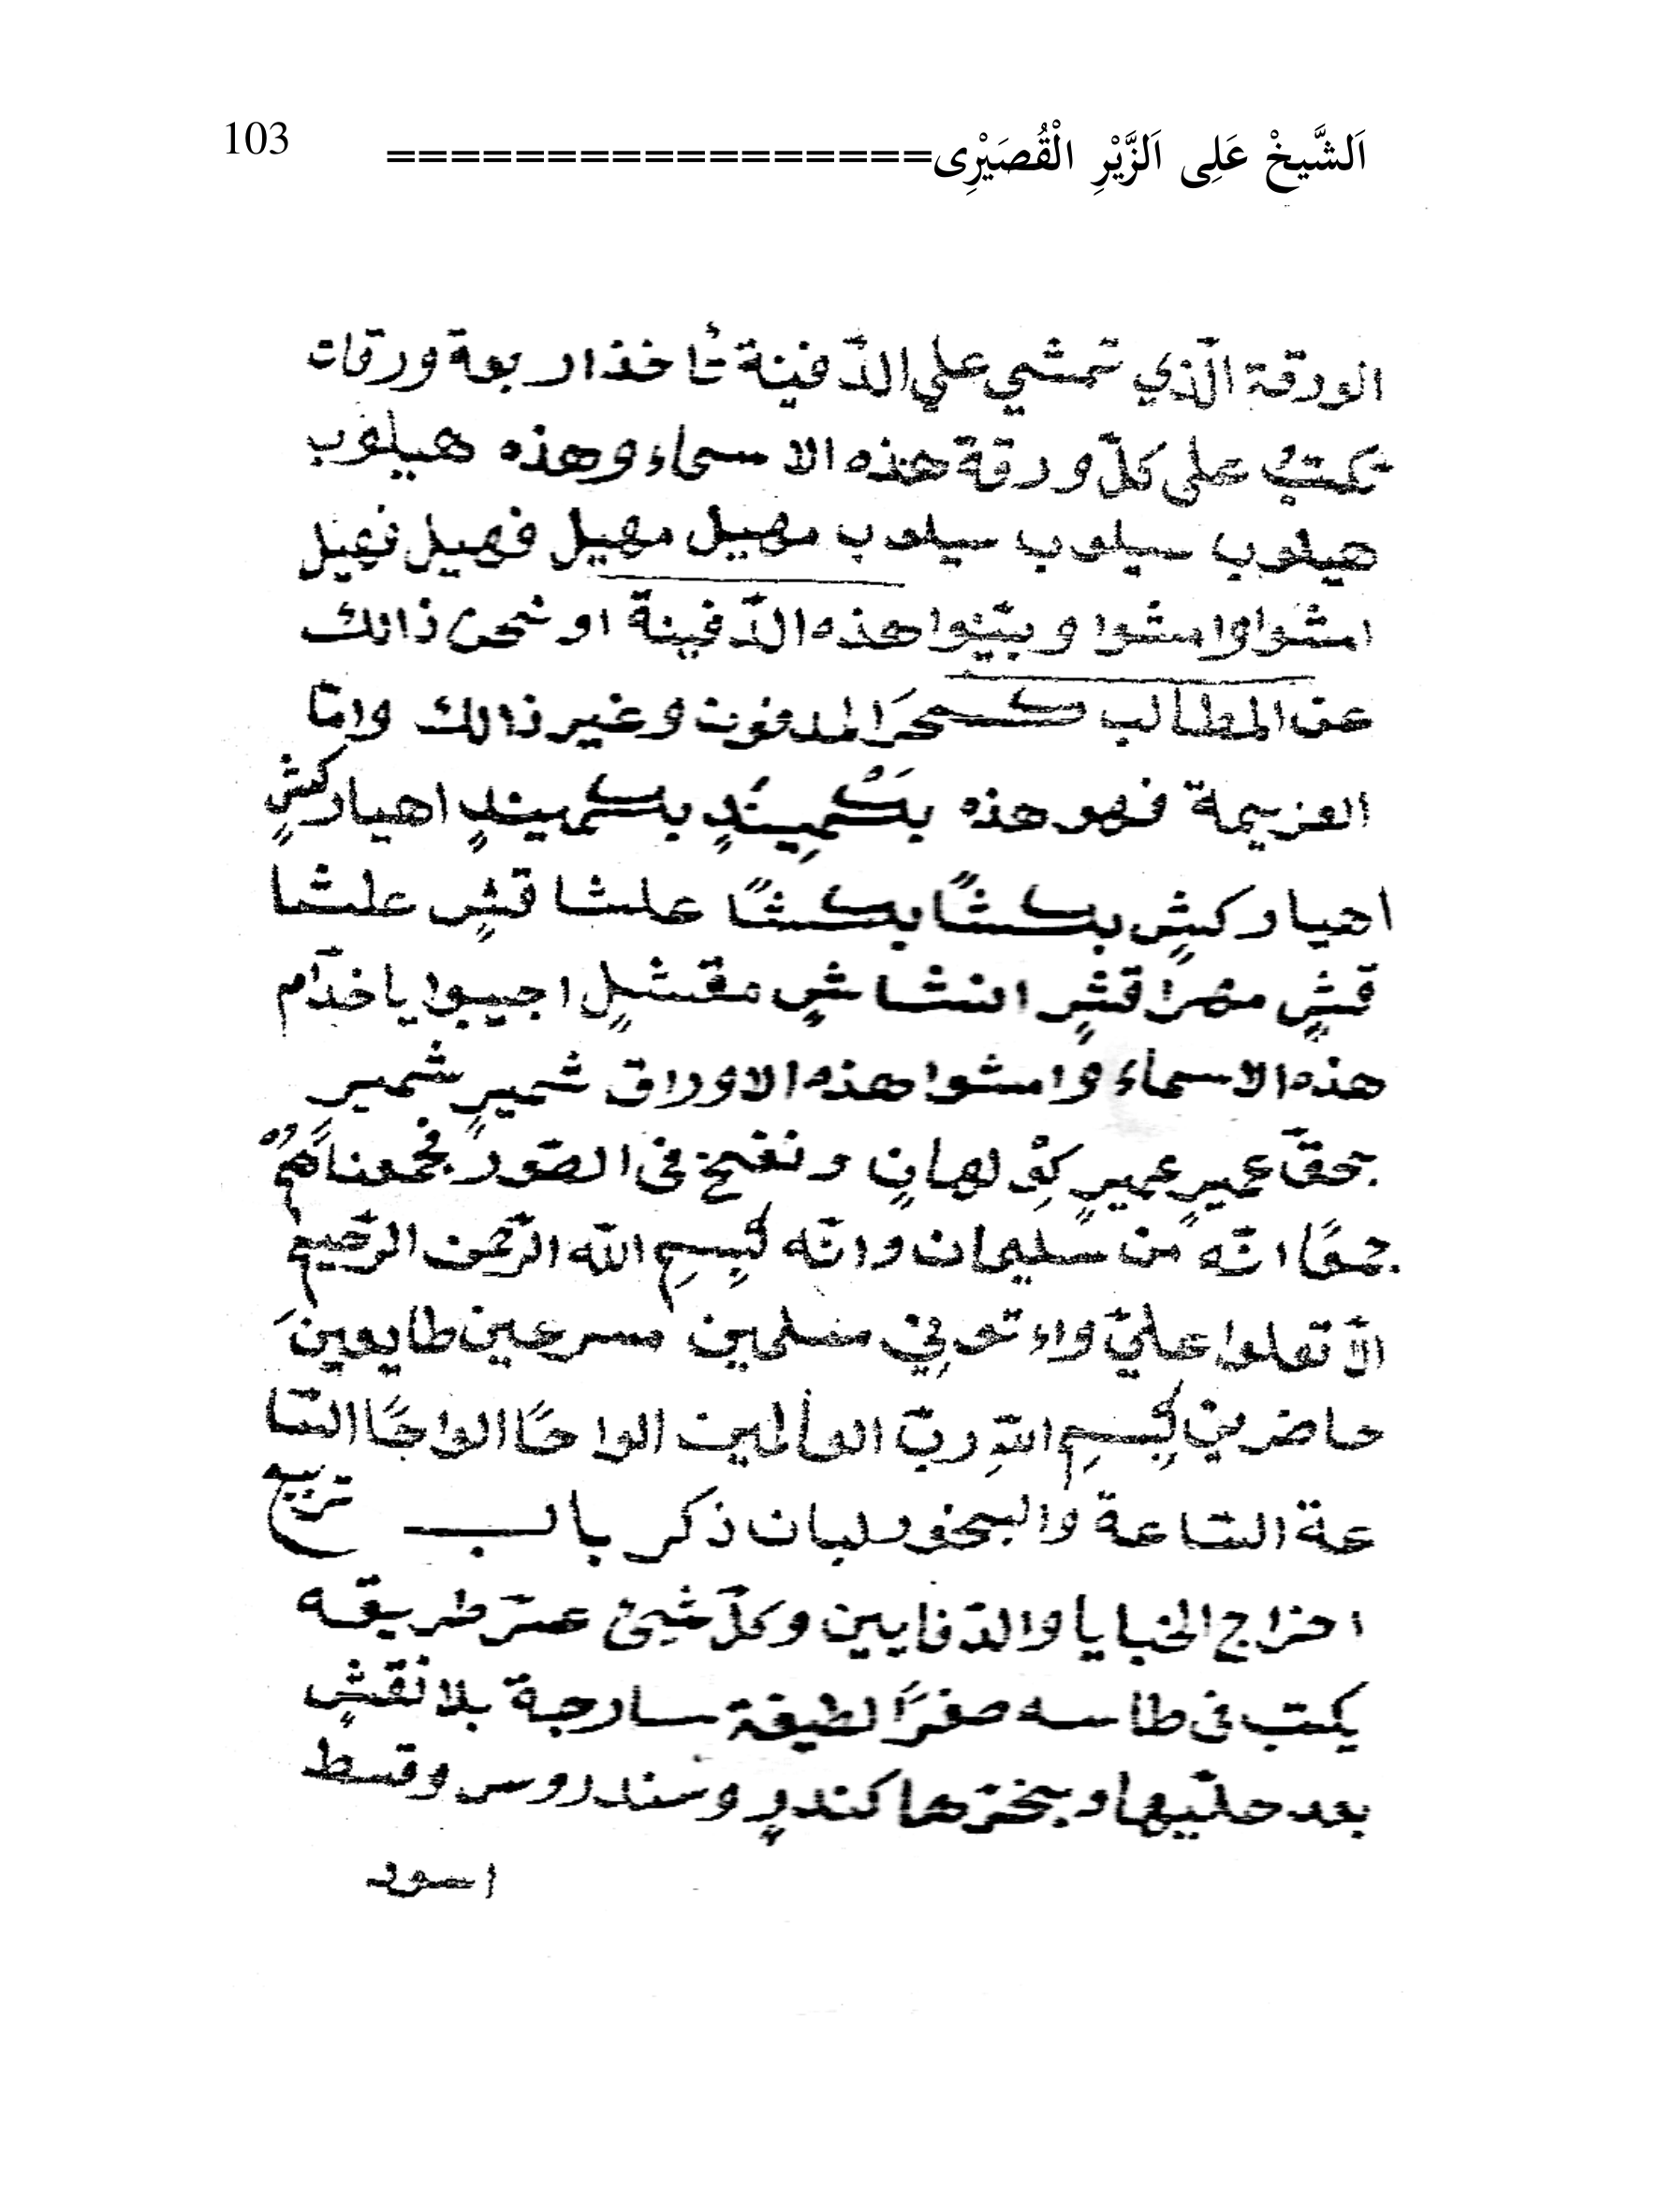 اَلشَّيخْ عَلِى اَلزَّيْرِ الْقُصَيْرِى================= 103
الورقة الّذي تمشي علي الدّفينة تأخذ اربعة ورقات
تكتب على كلّ ورقة هذه الاسماء وهذه هيلوب
هيلوب سيلوب سيلوب مهيل مهيل فهيل فهيل
امشوا وامشوا وبيّنوا هذه الدّفينة او نحن ذالك
عن المطالب كسحرَ المدفون وغير ذالك وامّا
العزيمة فهو هذه بكْمِينَدٍ بكميندٍ اهياركشٍ
اهياركشٍ بكشاً بكشاً علشاقشٍ علشا
قشٍ مهراقشٍ انشاشٍ مقشلٍ اجيبوا يا خدّام
هذه الاسماء وامشوا هذه الاوراق شميرٍ شمير
بحقّ عميرٍ عميرٍ ونفخ فى الصّور فجمعناهُمْ
جمعًا انّه من سليمان وانّه بِسمِ الله الرّحمن الرّحيم
الّا تعلوا عليّ واءتوني مسلمين مسرعين طايعينَ
حاضرين بِسمِ اللهِ ربّ العالمين الواحًا الواحًا السّا
عة السّاعة والبخور لبان ذكر بالــب تربيع
اخراج الخبايا والدّفايين وكلّ شيئ عسرَ طريقه
يكتب فى طاسه صفرَا لطيفة سارجة بلا نقشٍ
بعد حلّيها وبخّرها كندرٍ وسندروس وقسط
اسود